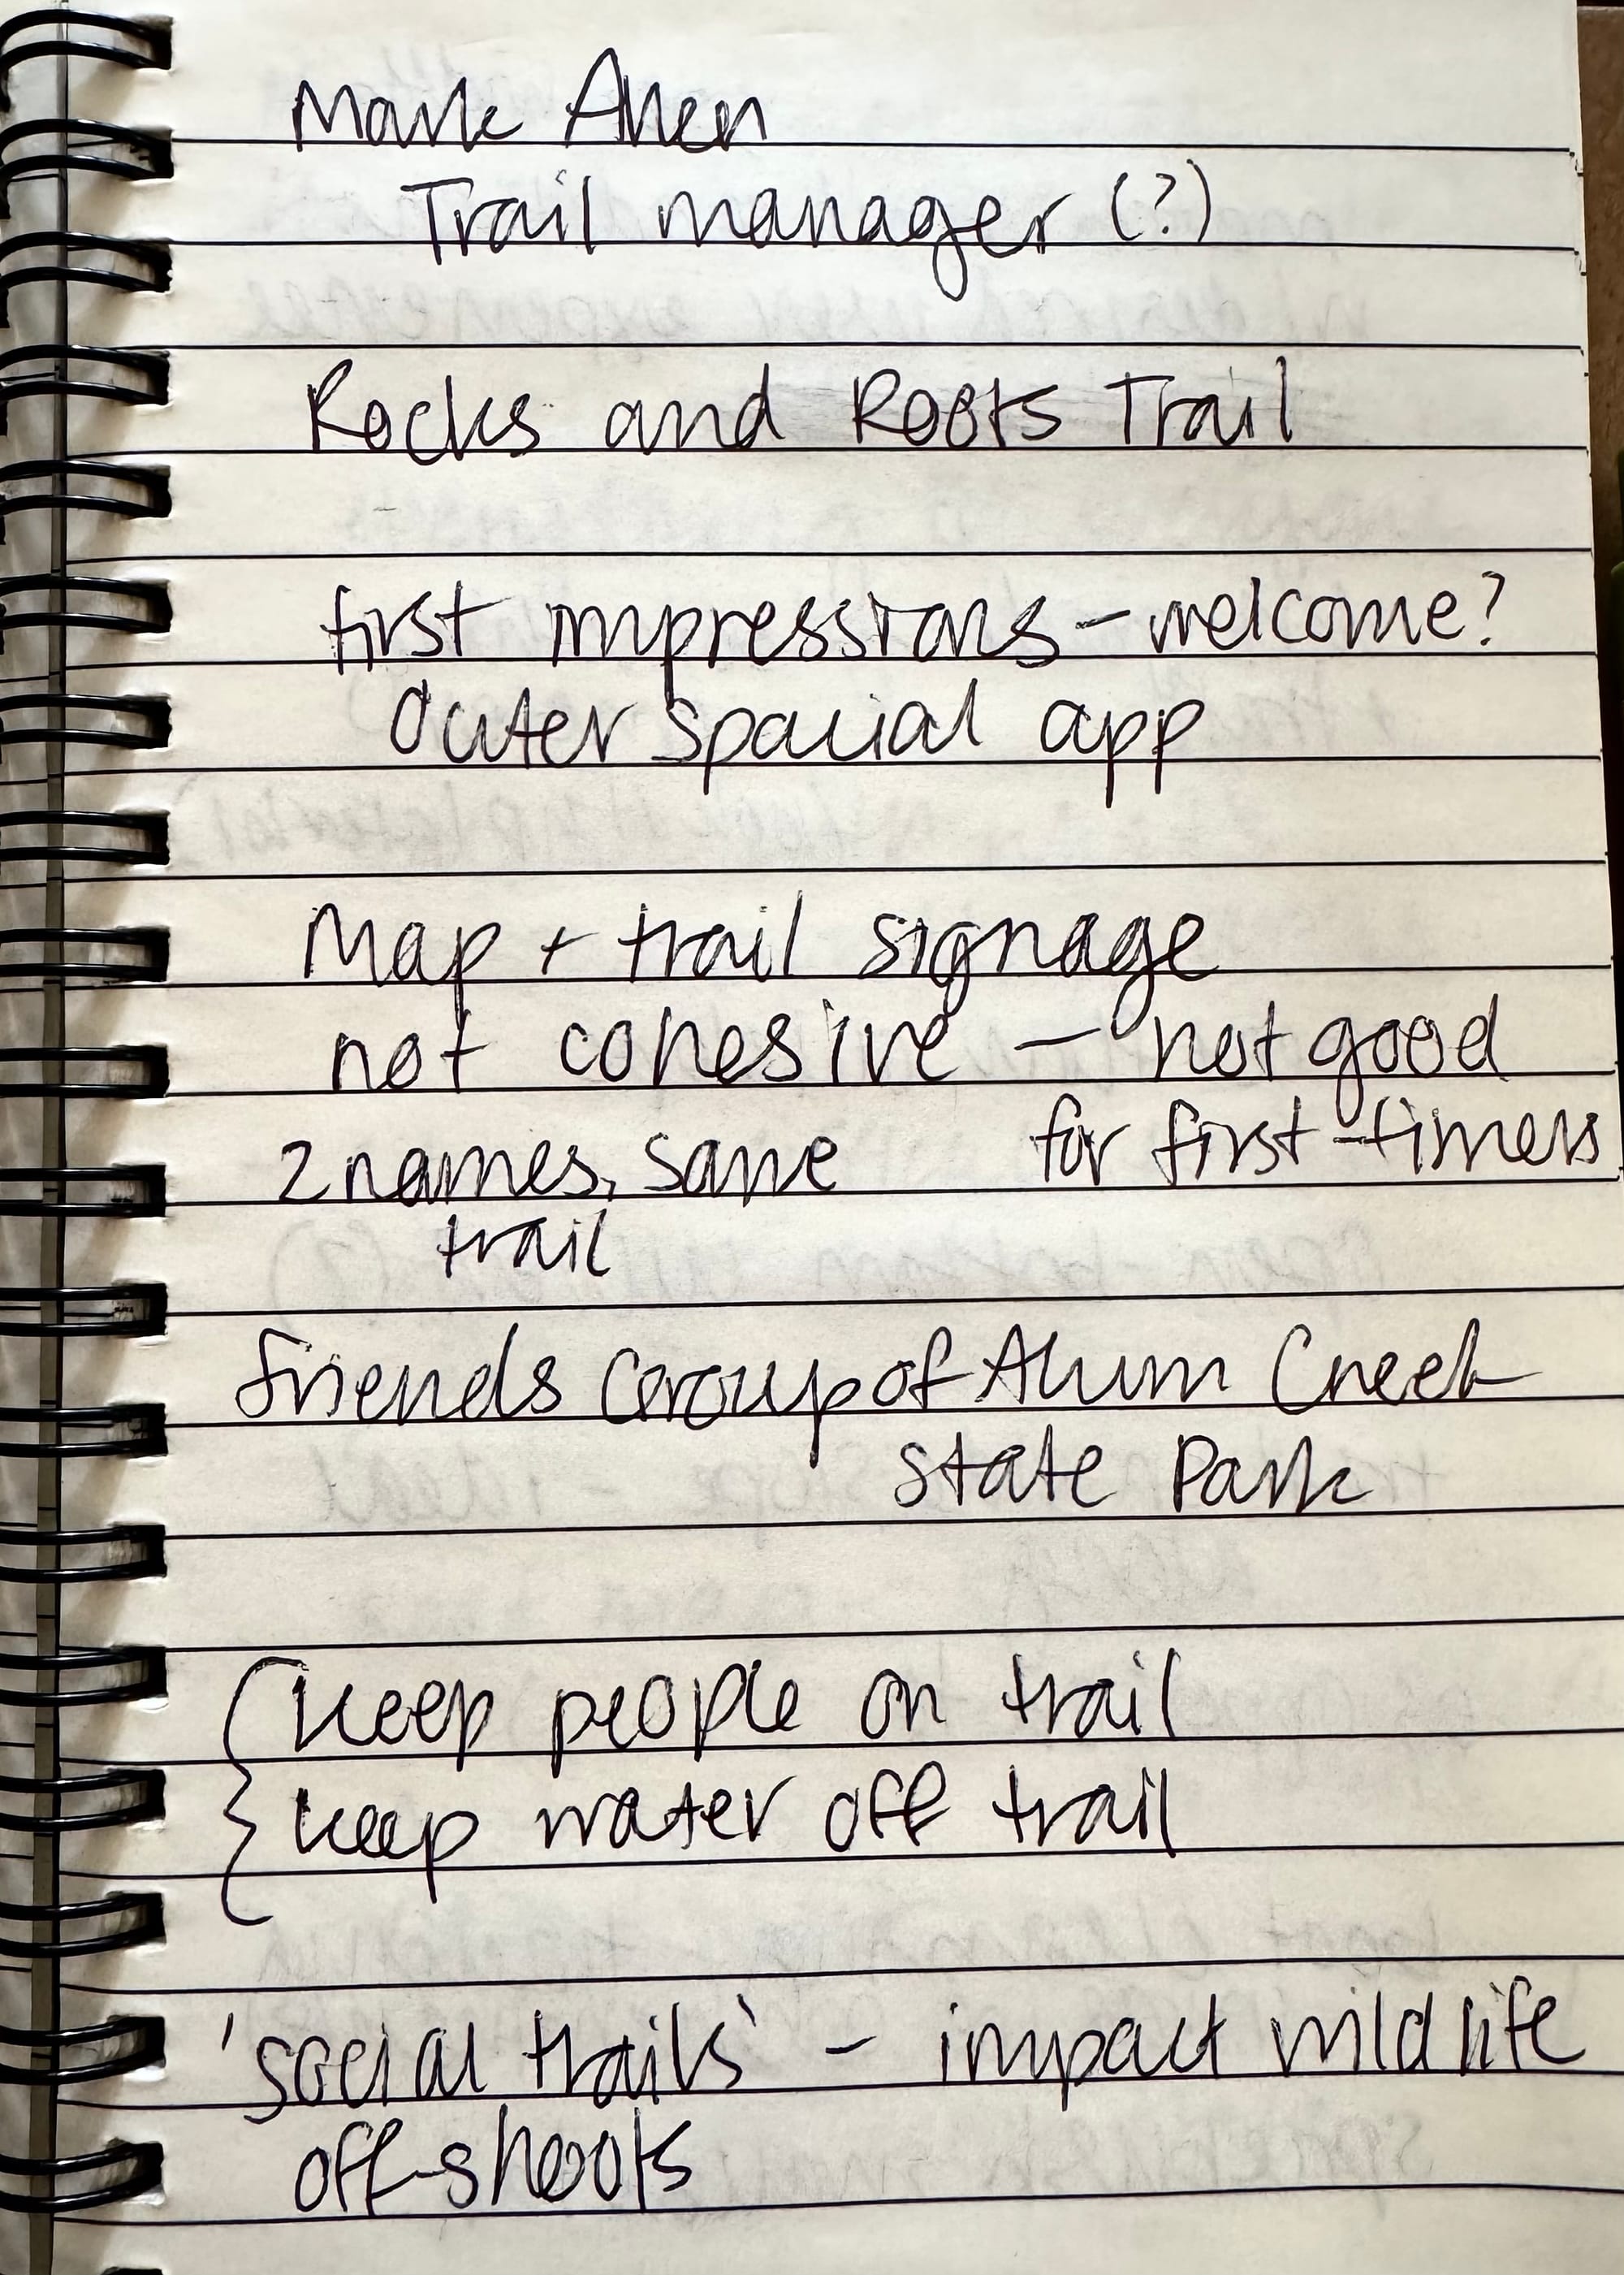 Mark Allen
Trail manager (?)
Rocks and Roots Trail
first impressions - welcome?
Outer spacial app
Map + trail signage
not cohesive - not good
for first-timers
2 names, same
trail
Friends Group of Alum Creek
State Park
keep people on trail
keep water off trail
'social trails' - impact wildlife
off-shoots